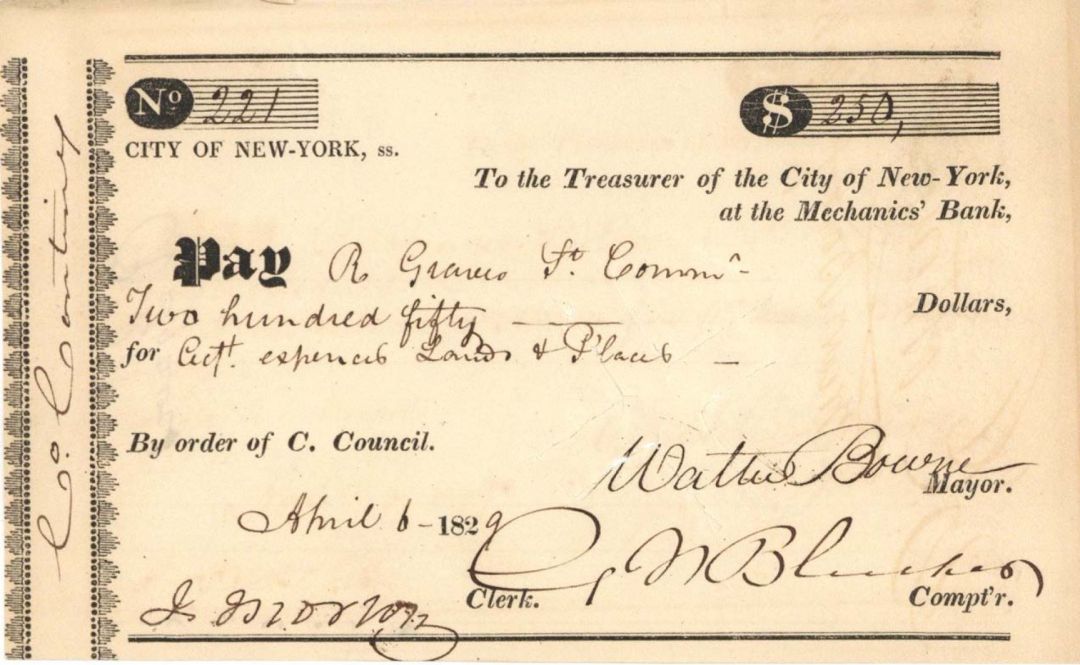 No 221
$ 250,
CITY OF NEW-YORK, ss.
To the Treasurer of the City of New-York,
at the Mechanics' Bank,
Pay R Graves St. Commr
Two hundred fifty — Dollars,
for expences Lands & Places —
By order of C. Council.
Walter Bowne
Mayor.
April 6 - 1829
Clerk.
Compt'r.
J Morton